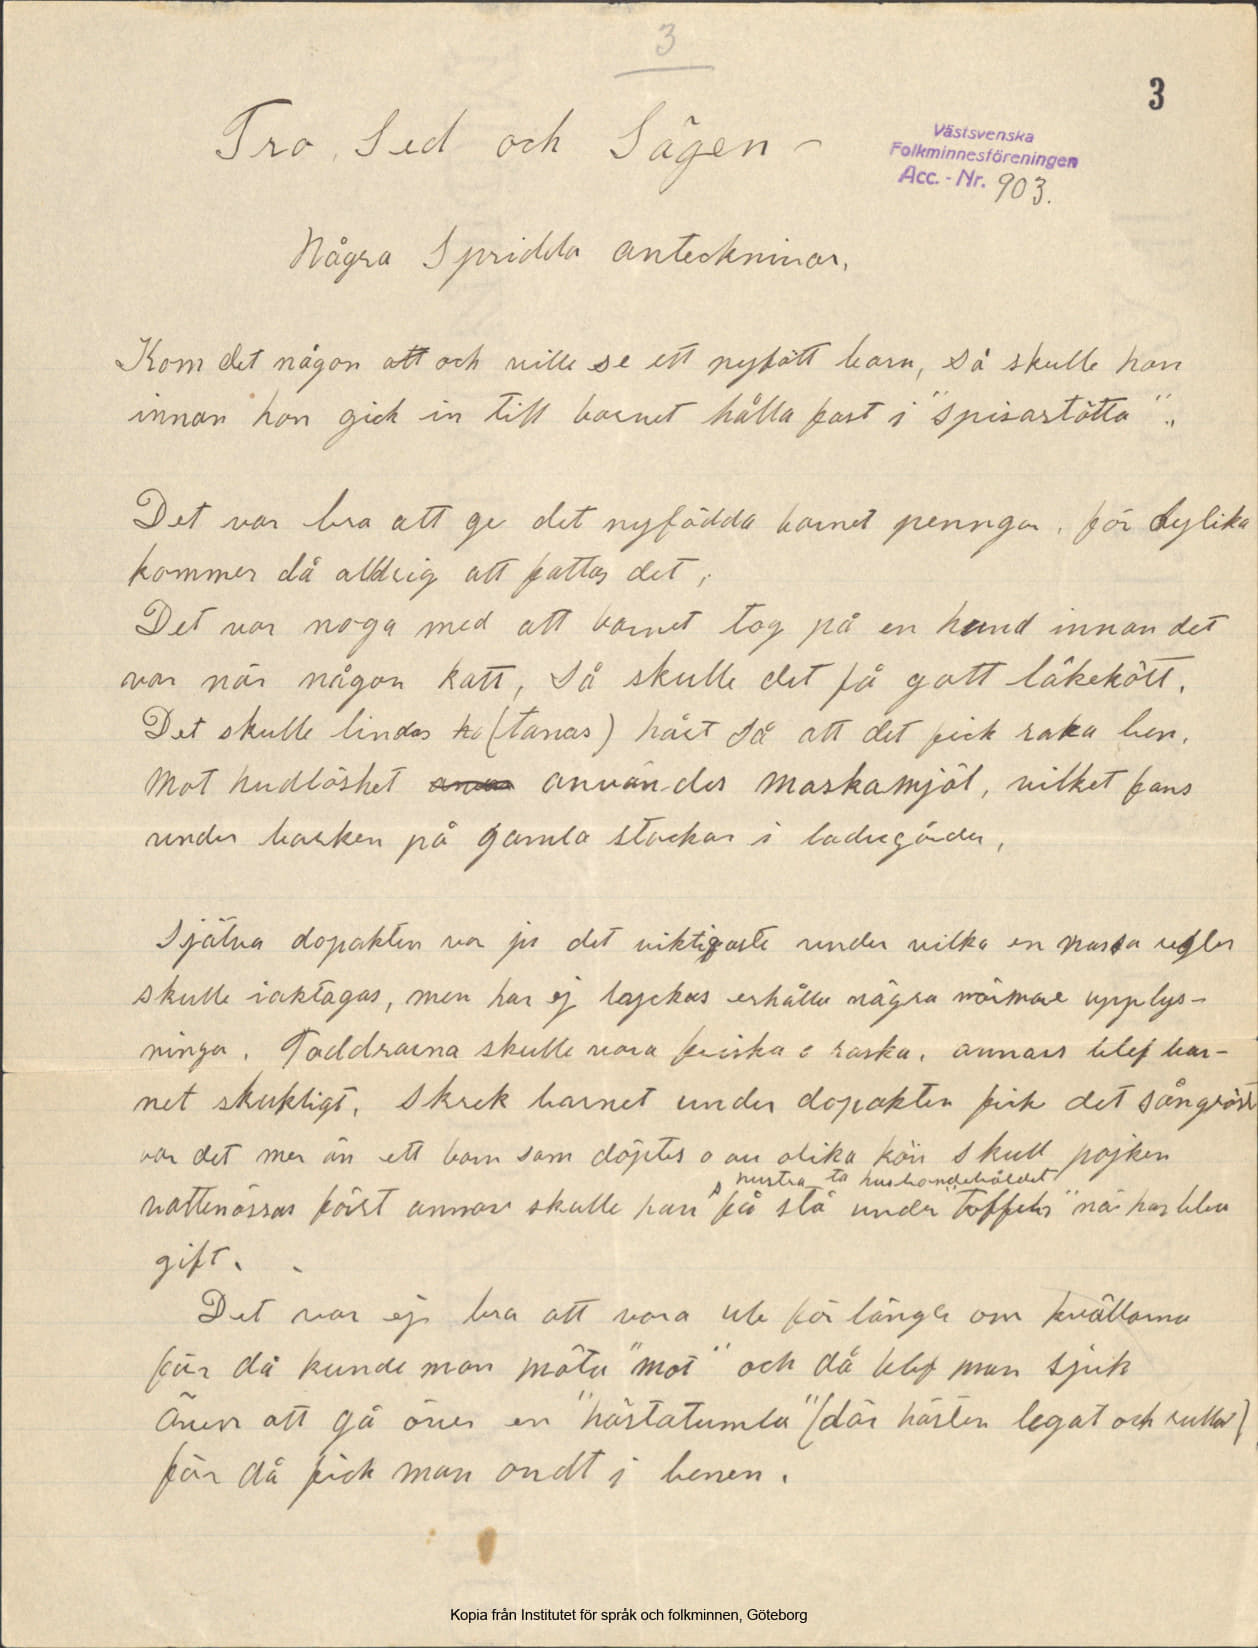 3
3
Tro, Sed och Sägen –
Västsvenska
Folkminnesföreningen
Acc. - Nr. 903.
Några Spridda anteckninar.
Kom det någon att och ville se ett nyfött barn, så skulle han
innan hon gick in till barnet hålla fast i "spisarstötta".
Det var bra att ge det nyfödda barnet penngar, för dylika
kommer då alldrig att fattas det.
Det var noga med att barnet tog på en hund innan det
var när någon katt, så skulle det få gott läkekött.
Det skulle lindas (tanas) hårt så att det fick raka ben.
Mot hudlöshet användes maskamjöl, vilket fans
under barken på gamla stockar i ladugården,
Själva dopakten var ju det viktigaste under vilka en massa regler
skulle iakttagas, men har ej lyckas erhålla några närmare upplys-
ningar. Faddrarna skulle vara friska o raska, annars blef bar-
net skukligt. Skrek barnet under dopakten fick det sångröst
var det mer än ett barn som döptes o av olika kön skull pojken
hustra ta husbondeväldet
vattenösas först annars skulle han få stå under "toffeln" när han blev
gift.
Det var ej bra att vara ute för länge om kvällarna
för då kunde man möta "mot" och då blef man sjuk
Även att gå över en "hästatumla" (där hästen legat och rullat)
för då fick man ondt i benen.
Kopia från Institutet för språk och folkminnen, Göteborg